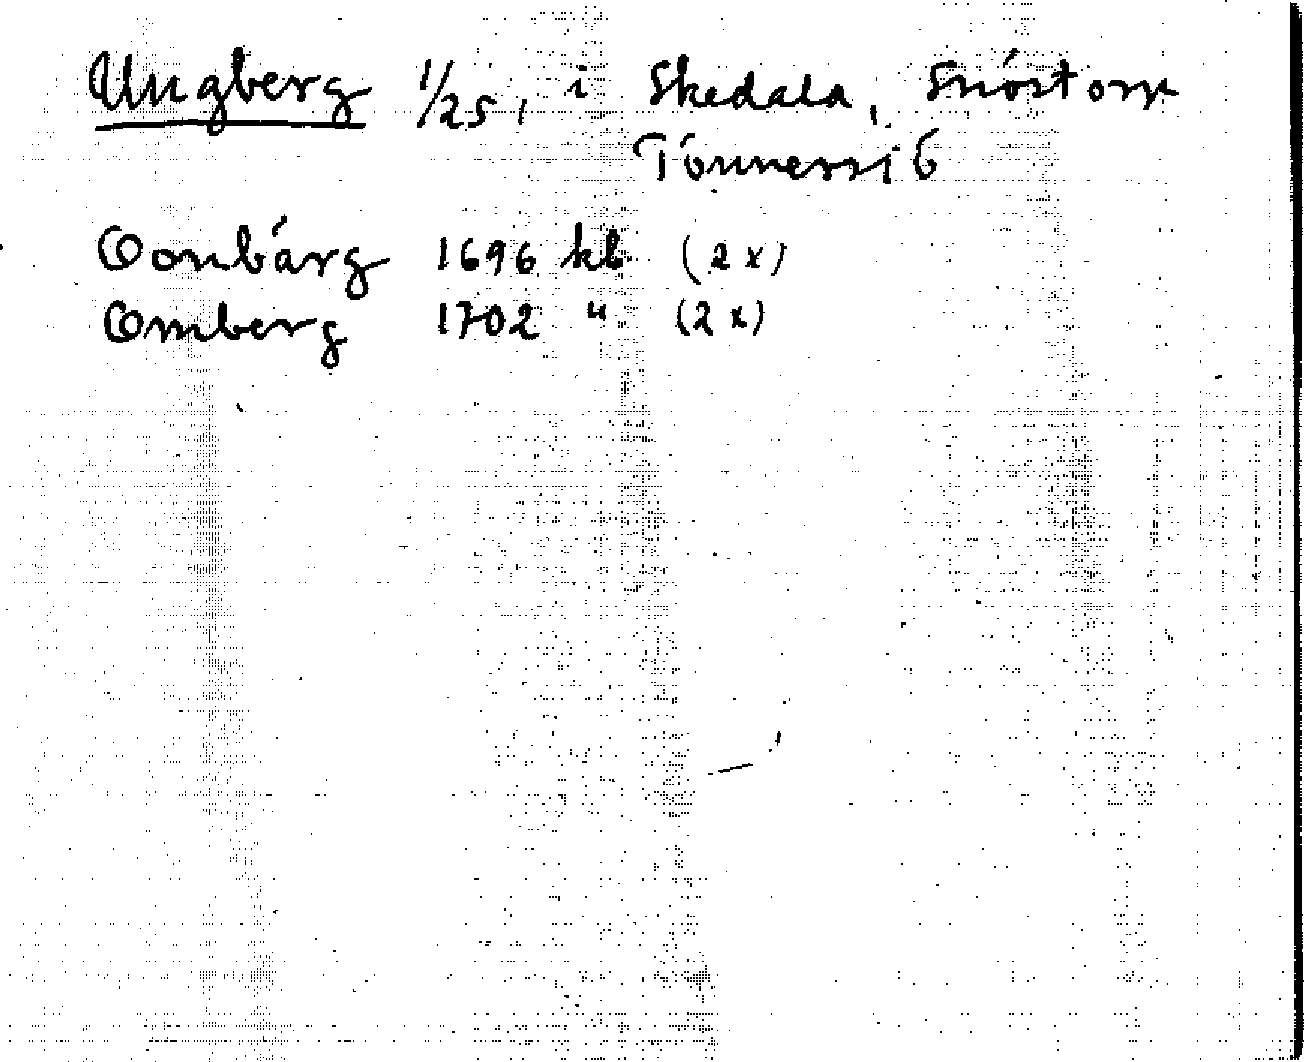 Ungberg 1/25, i Skedala, Snöstorp
Tönnersjö
Oonbärg 1696 kb (2x)
Omberg 1702 " (2x)